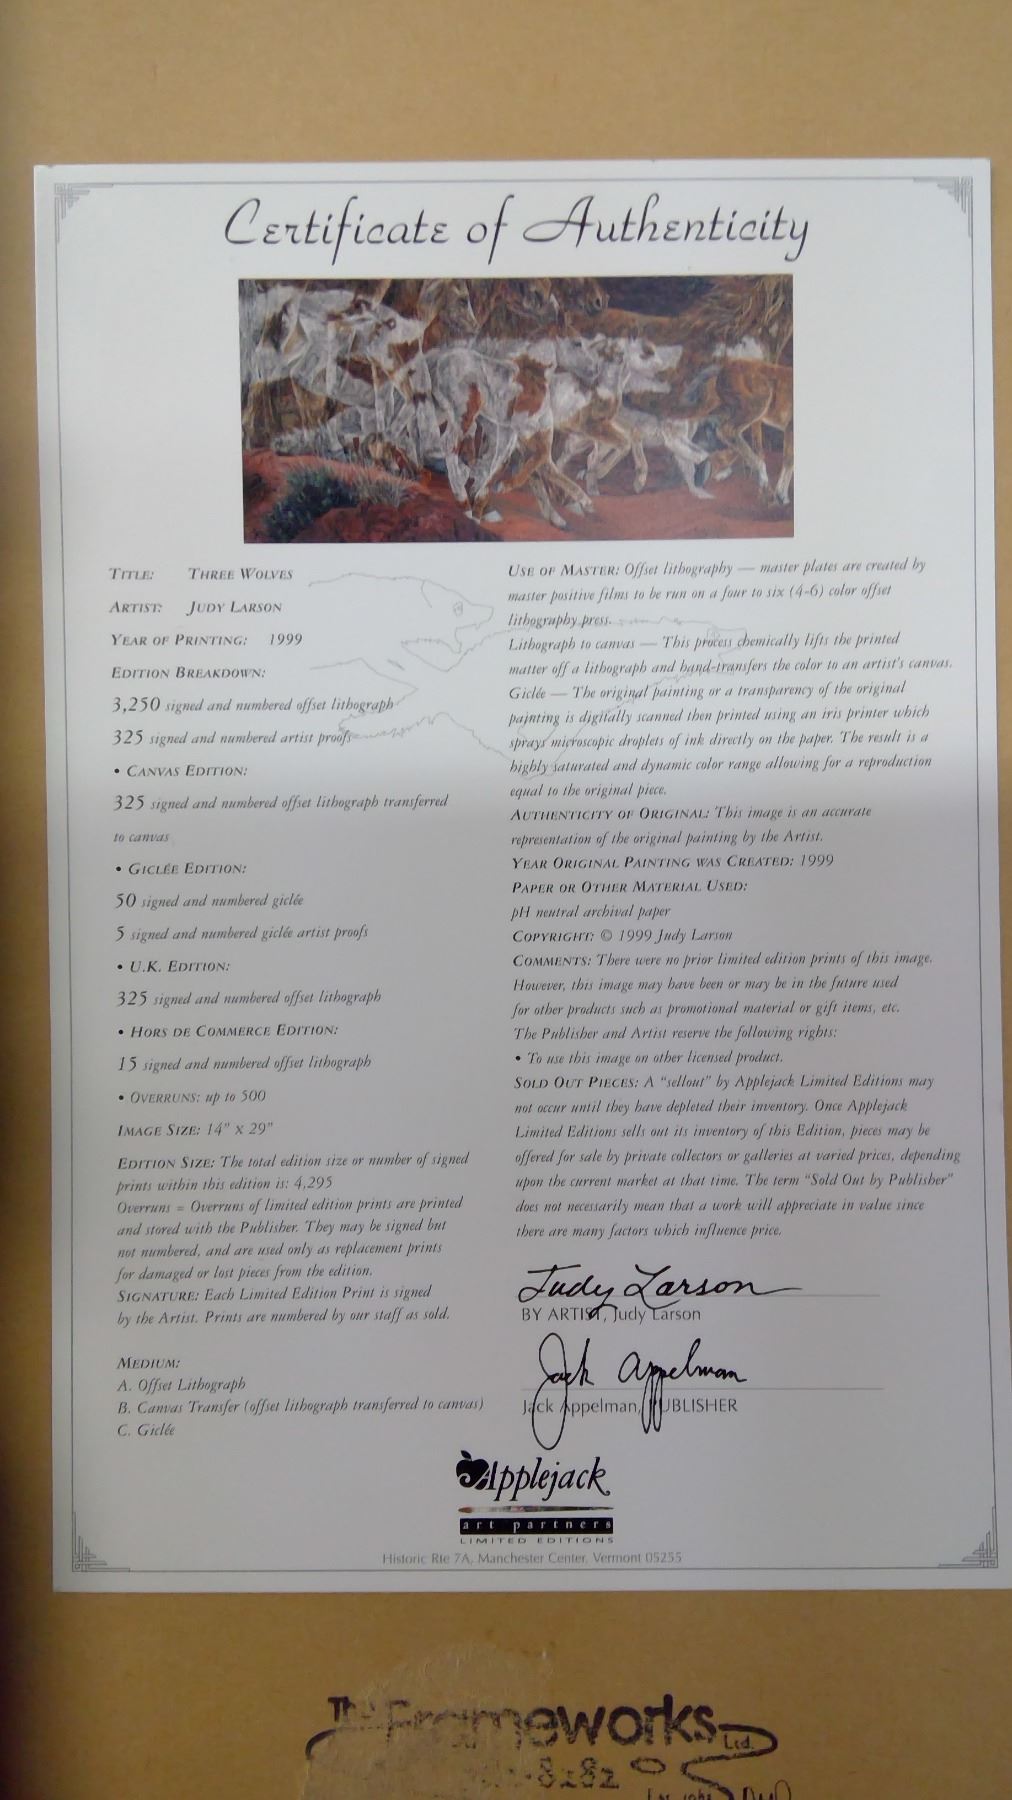 Certificate of Authenticity
TITLE: THREE WOLVES
ARTIST: JUDY LARSON
YEAR OF PRINTING: 1999
EDITION BREAKDOWN:
3,250 signed and numbered offset lithograph
325 signed and numbered artist proofs
• CANVAS EDITION:
325 signed and numbered offset lithograph transferred
to canvas
• GICLÉE EDITION:
50 signed and numbered giclée
5 signed and numbered giclée artist proofs
• U.K. EDITION:
325 signed and numbered offset lithograph
• HORS DE COMMERCE EDITION:
15 signed and numbered offset lithograph
• OVERRUNS: up to 500
IMAGE SIZE: 14" X 29"
EDITION SIZE: The total edition size or number of signed
prints within this edition is: 4,295
Overruns = Overruns of limited edition prints are printed
and stored with the Publisher. They may be signed but
not numbered, and are used only as replacement prints
for damaged or lost pieces from the edition.
SIGNATURE: Each Limited Edition Print is signed
by the Artist. Prints are numbered by our staff as sold.
MEDIUM:
A. Offset Lithograph
B. Canvas Transfer (offset lithograph transferred to canvas)
C. Giclée
USE OF MASTER: Offset lithography — master plates are created by
master positive films to be run on a four to six (4-6) color offset
lithography press.
Lithograph to canvas — This process chemically lifts the printed
matter off a lithograph and hand-transfers the color to an artist's canvas.
Giclée — The original painting or a transparency of the original
painting is digitally scanned then printed using an iris printer which
sprays microscopic droplets of ink directly on the paper. The result is a
highly saturated and dynamic color range allowing for a reproduction
equal to the original piece.
AUTHENTICITY OF ORIGINAL: This image is an accurate
representation of the original painting by the Artist.
YEAR ORIGINAL PAINTING WAS CREATED: 1999
PAPER OR OTHER MATERIAL USED:
pH neutral archival paper
COPYRIGHT: © 1999 Judy Larson
COMMENTS: There were no prior limited edition prints of this image.
However, this image may have been or may be in the future used
for other products such as promotional material or gift items, etc.
The Publisher and Artist reserve the following rights:
• To use this image on other licensed product.
SOLD OUT PIECES: A "sellout" by Applejack Limited Editions may
not occur until they have depleted their inventory. Once Applejack
Limited Editions sells out its inventory of this Edition, pieces may be
offered for sale by private collectors or galleries at varied prices, depending
upon the current market at that time. The term "Sold Out by Publisher"
does not necessarily mean that a work will appreciate in value since
there are many factors which influence price.
Judy Larson
BY ARTIST, Judy Larson
Jack Appelman
Jack Appelman, PUBLISHER
Applejack
art partners
LIMITED EDITIONS
Historic Rte 7A, Manchester Center, Vermont 05255
The Frameworks Ltd.
8282